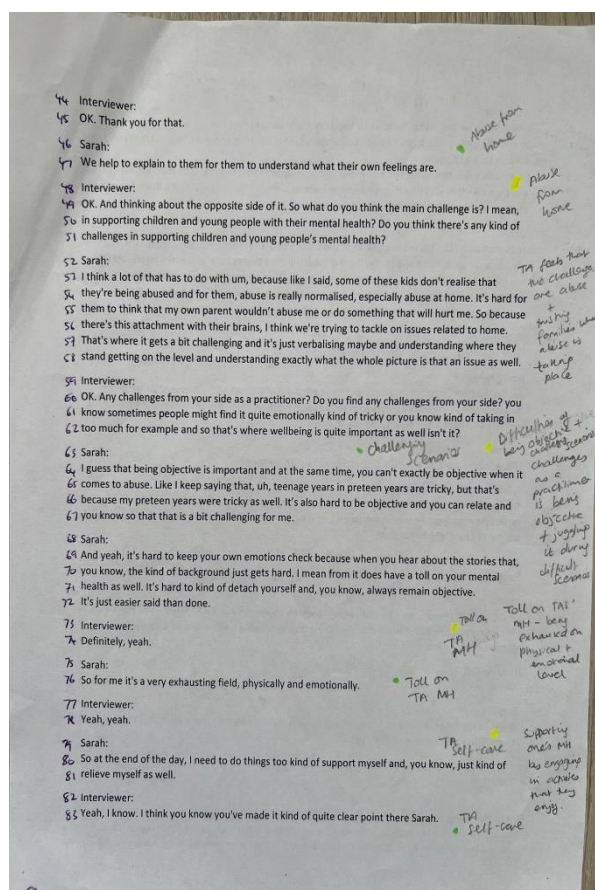 44 Interviewer:
45 OK. Thank you for that.
Abuse from
home
46 Sarah:
47 We help to explain to them for them to understand what their own feelings are.
Abuse
from
home
48 Interviewer:
49 OK. And thinking about the opposite side of it. So what do you think the main challenge is? I mean,
50 in supporting children and young people with their mental health? Do you think there's any kind of
51 challenges in supporting children and young people's mental health?
52 Sarah:
53 I think a lot of that has to do with um, because like I said, some of these kids don't realise that
54 they're being abused and for them, abuse is really normalised, especially abuse at home. It's hard for
55 them to think that my own parent wouldn't abuse me or do something that will hurt me. So because
56 there's this attachment with their brains, I think we're trying to tackle on issues related to home.
57 That's where it gets a bit challenging and it's just verbalising maybe and understanding where they
58 stand getting on the level and understanding exactly what the whole picture is that an issue as well.
TA feels that
two challenges
are abuse
+
trusting
families where
abuse is
taking
place
59 Interviewer:
60 OK. Any challenges from your side as a practitioner? Do you find any challenges from your side? you
61 know sometimes people might find it quite emotionally kind of tricky or you know kind of taking in
62 too much for example and so that's where wellbeing is quite important as well isn't it?
challenging
scenarios
Difficulties of
being objective +
challenges
as a
practitioner
is being
objective
+ juggling
it during
difficult
scenarios
63 Sarah:
64 I guess that being objective is important and at the same time, you can't exactly be objective when it
65 comes to abuse. Like I keep saying that, uh, teenage years in preteen years are tricky, but that's
66 because my preteen years were tricky as well. It's also hard to be objective and you can relate and
67 you know so that that is a bit challenging for me.
68 Sarah:
69 And yeah, it's hard to keep your own emotions check because when you hear about the stories that,
70 you know, the kind of background just gets hard. I mean from it does have a toll on your mental
71 health as well. It's hard to kind of detach yourself and, you know, always remain objective.
72 It's just easier said than done.
73 Interviewer:
74 Definitely, yeah.
Toll on
TA
MH
Toll on TAs'
MH - being
exhausted on
physical +
emotional
level
75 Sarah:
76 So for me it's a very exhausting field, physically and emotionally.
Toll on
TA MH
77 Interviewer:
78 Yeah, yeah.
79 Sarah:
80 So at the end of the day, I need to do things too kind of support myself and, you know, just kind of
81 relieve myself as well.
TA
self-care
Supporting
one's MH
by engaging
in activities
that they
enjoy.
82 Interviewer:
83 Yeah, I know. I think you know you've made it kind of quite clear point there Sarah.
TA
self-care